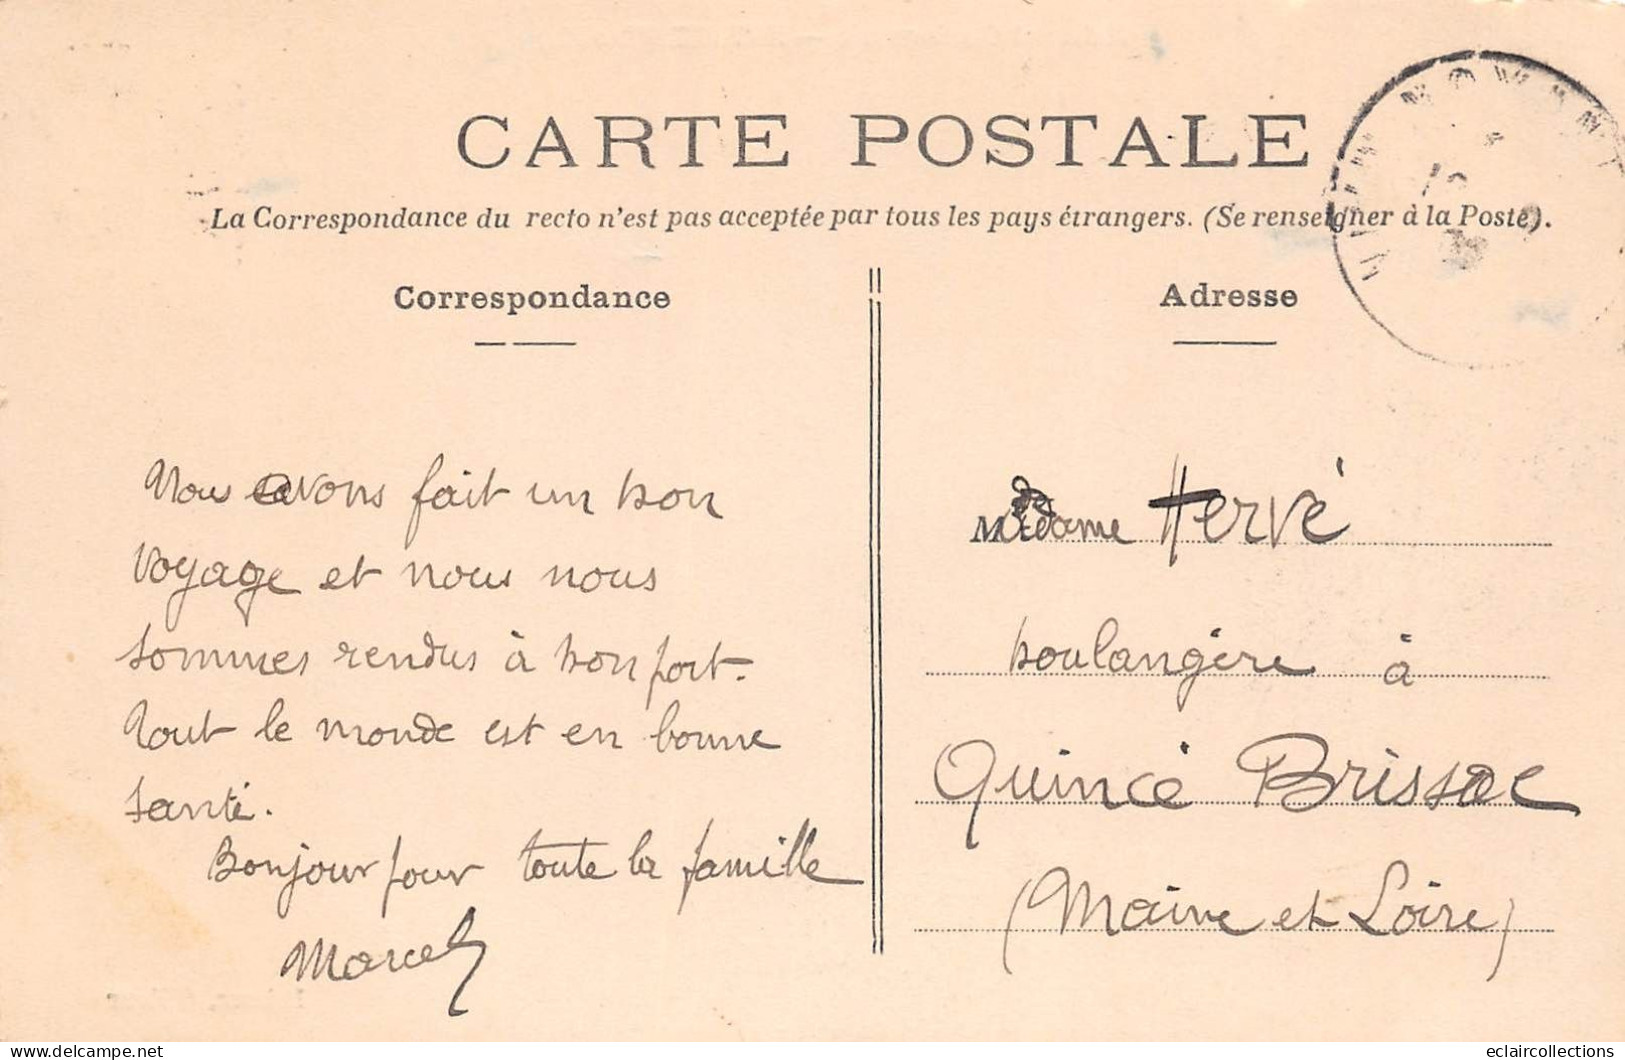 CARTE POSTALE
La Correspondance du recto n'est pas acceptée par tous les pays étrangers. (Se renseigner à la Poste).
Correspondance
Nous avons fait un bon
voyage et nous nous
sommes rendus à bon port.
Tout le monde est en bonne
santé.
Bonjour pour toute la famille
Marcel
Adresse
Madame Hervé
boulangère à
Quincé Brissac
(Maine et Loire)
delcampe.net
eclaircollections